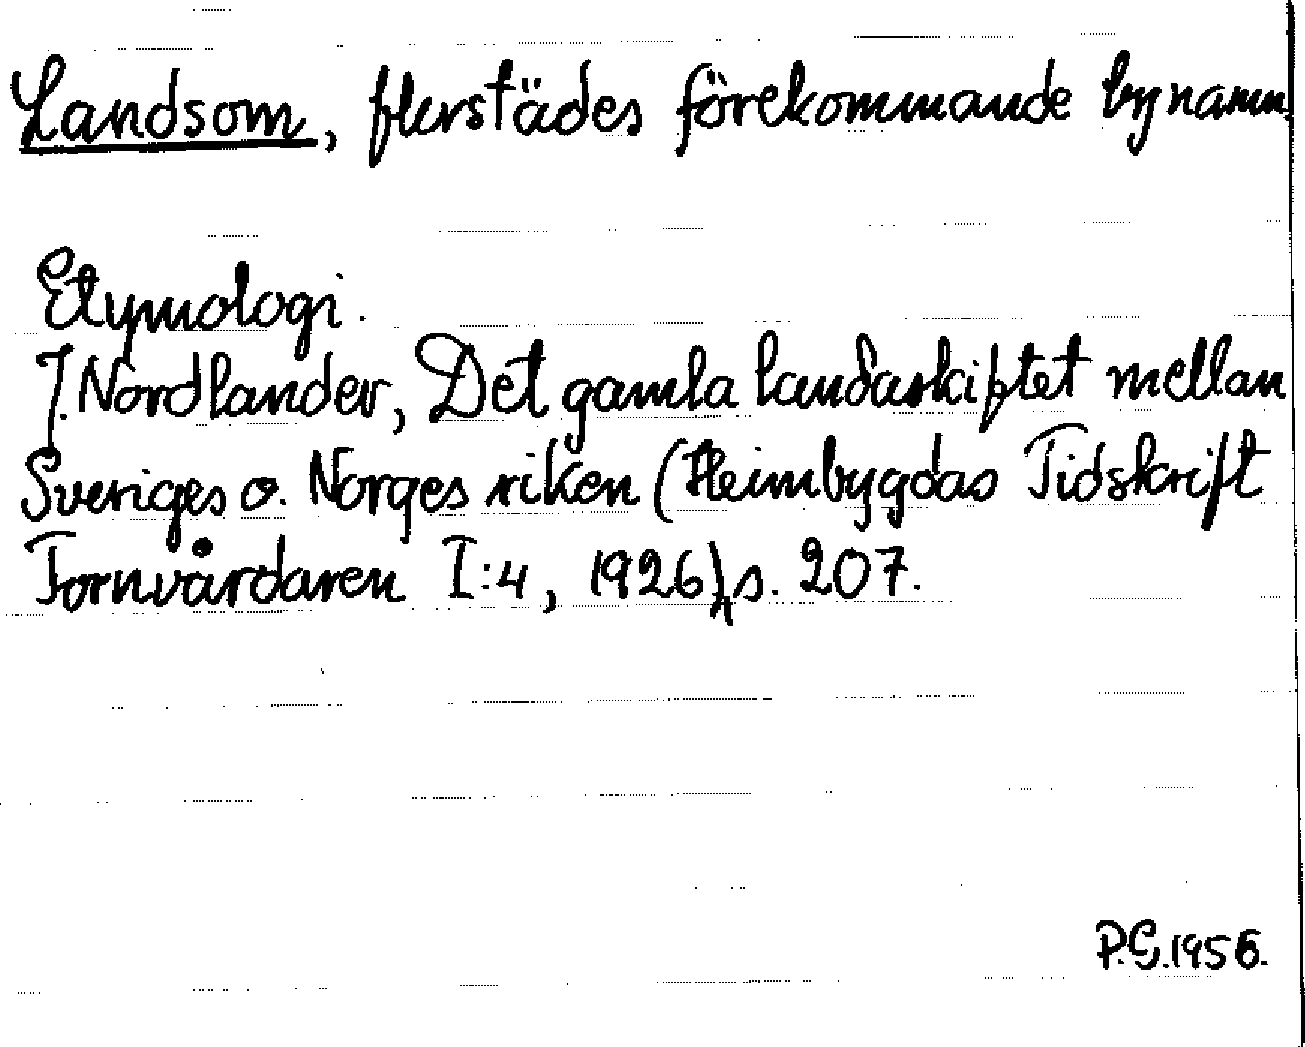 Landsom, flerstädes förekommande bynamn.
Etymologi.
J. Nordlander, Det gamla landaskiftet mellan
Sveriges o. Norges riken (Heimbygdas Tidskrift
Fornvårdaren I:4, 1926), s. 207.
P.G.1956.